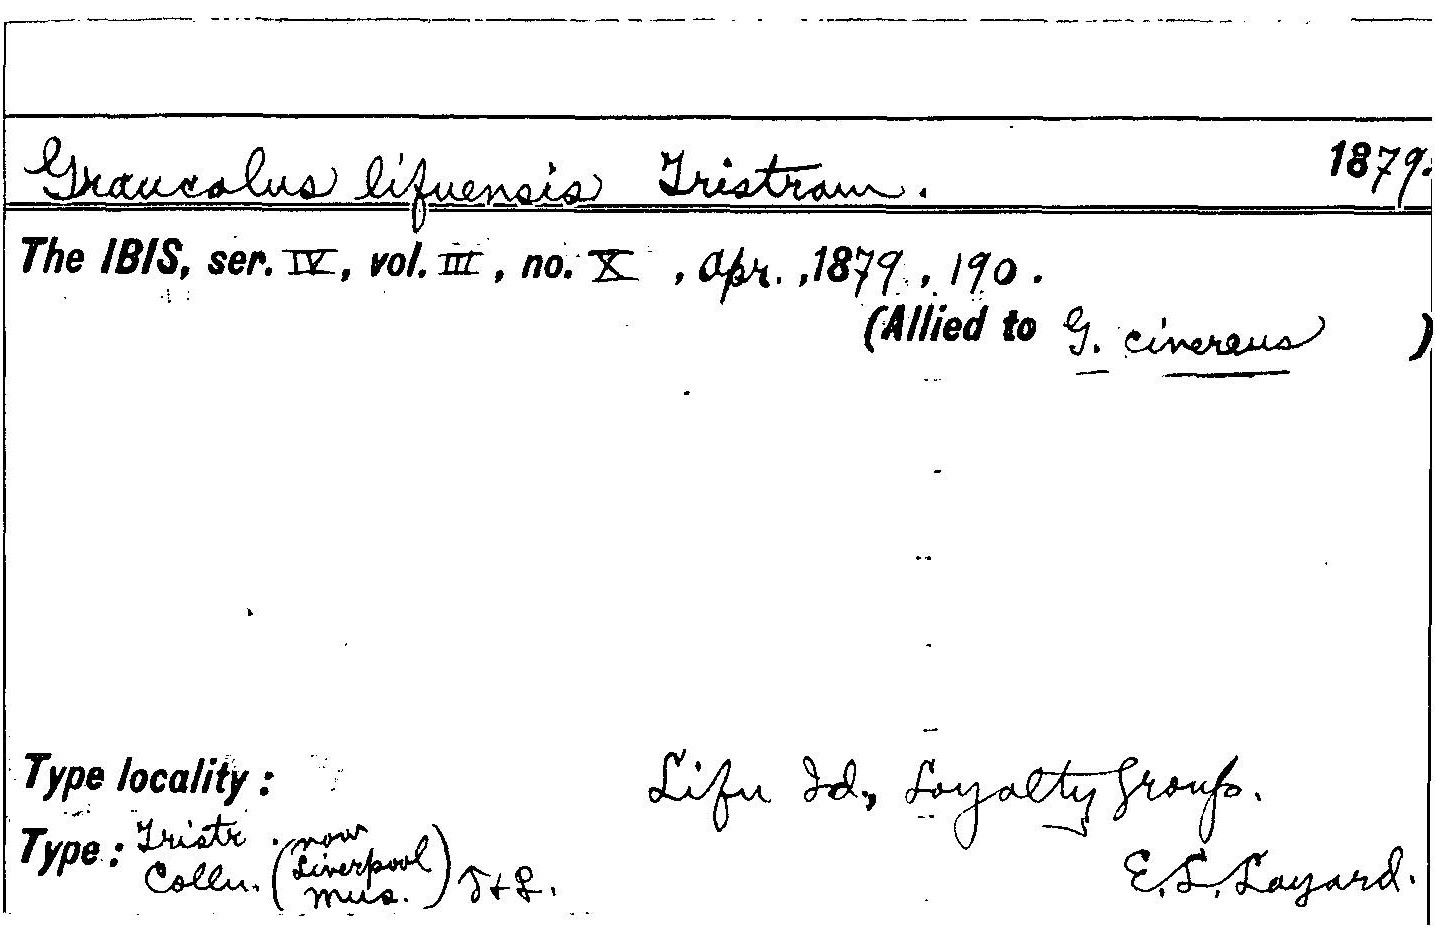 Graucalus lifuensis Tristram. 1879.
The IBIS, ser. IV, vol. III, no. X , Apr. ,1879 , 190 .
(Allied to G. cinereus )
Type locality : Lifu Id., Loyalty Group.
Type : Tristr. Colln. (now Liverpool Mus.) T+L. E.L. Layard.